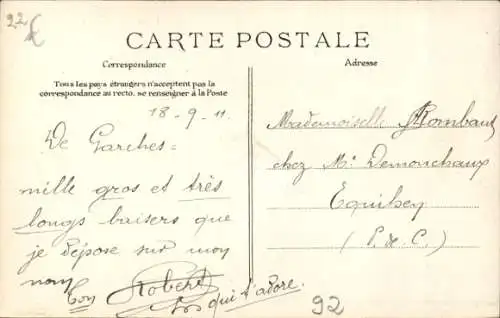 22
CARTE POSTALE
Correspondance
Adresse
Tous les pays étrangers n'acceptent pas la
correspondance au recto. se renseigner à la Poste
18-9-11
De Garches =
mille gros et très
longs baisers que
je dépose sur mon
nom
ton Robert
qui t'adore.
Mademoiselle J Rombaut
chez Mr Demonchaux
Equihey
(P. de C.)
92